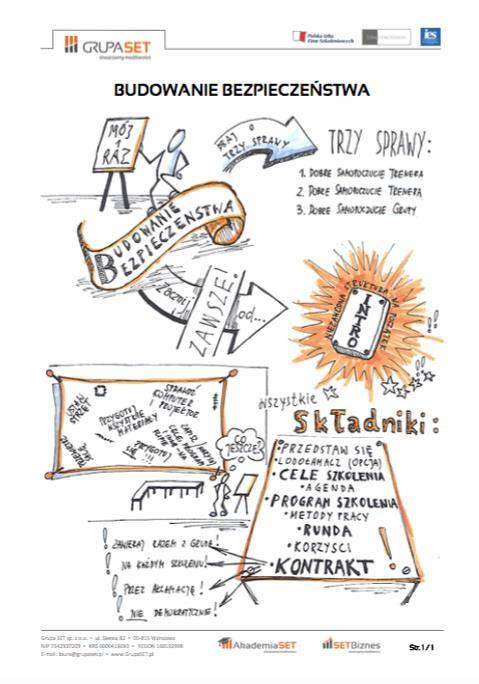 GRUPASET
stwarzamy możliwości
Polska Izba
Firm Szkoleniowych
BUDOWANIE BEZPIECZEŃSTWA
MÓJ
1
RAZ
TRZY SPRAWY
TRZY SPRAWY:
1. DOBRE SAMOPOCZUCIE TRENERA
2. DOBRE SAMOPOCZUCIE TRENERA
3. DOBRE SAMOPOCZUCIE GRUPY
BUDOWANIE
BEZPIECZEŃSTWA
ZACZNIJ
ZAWSZE!
od...
STRUKTURA NA POCZĄTEK
INTRO
!!
!!
SPRAWDŹ
KOMPUTER
I PROJEKTOR
USTAW
SPRZĘT
PRZYGOTUJ
WSZYSTKIE
MATERIAŁY
CELE, PROGRAM
PRZYGOTUJ
SIĘ !!!
CO
JESZCZE?
WSZYSTKIE
Składniki:
• PRZEDSTAW SIĘ
• LODOŁAMACZ (OPCJA)
• CELE SZKOLENIA
• AGENDA
• PROGRAM SZKOLENIA
• METODY PRACY
• RUNDA
• KORZYŚCI
• KONTRAKT !
! ZAWIERAJ RAZEM Z GRUPĄ!
! NA KAŻDYM SZKOLENIU!
! PRZEZ AKLAMACJĘ!
! NIE DEMOKRATYCZNIE!
Grupa SET sp. z o.o. • ul. Sienna 82 • 00-815 Warszawa
NIP 7542937209 • KRS 0000419093 • REGON 160192998
E-mail: biuro@grupaset.pl • www.GrupaSET.pl
AkademiaSET
SETBiznes
Str. 1 / 1